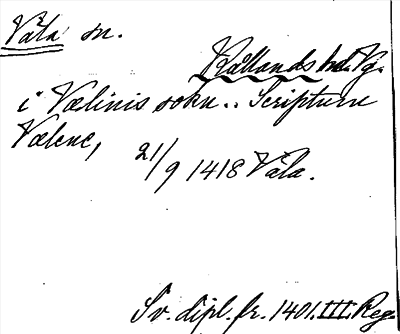 Våla sn.
Kållands hd. Vg.
i Wælinis sokn.. Scriptum
Wælene,
21/9 1418 Våla.
Sv. dipl. fr. 1401. III. Reg.